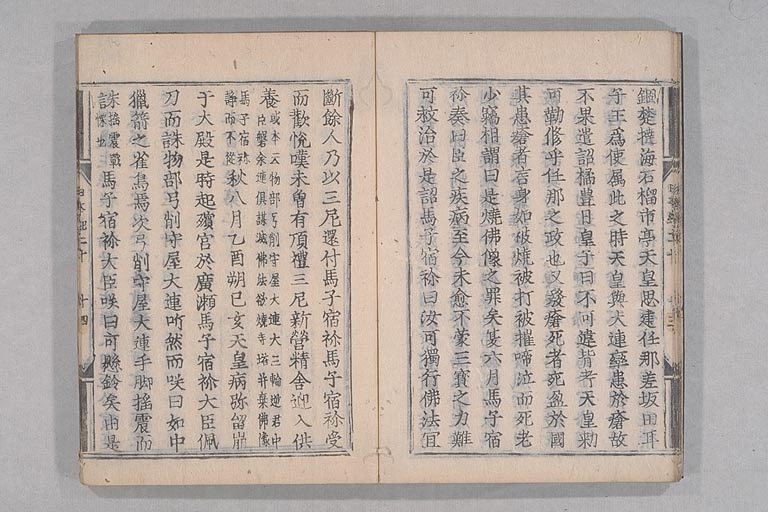 錮楚撻海石榴市亭天皇思建任那差坂田耳
子王爲使属此之時天皇與大連卒患於瘡故
不果遣詔橘豐日皇子曰不可違背考天皇勅
可勤修乎任那之政也又發瘡死者充盈於國
其患瘡者言身如被燒被打被摧啼泣而死老
少竊相謂曰是燒佛像之罪矣夏六月馬子宿
祢奏曰臣之疾病至今未愈不蒙三寶之力難
可救治於是詔馬子宿祢曰汝可獨行佛法冝
斷餘人乃以三尼還付馬子宿祢馬子宿祢受
而歡悅嘆未曽有頂禮三尼新營精舎迎入供
養或本云物部弓削守屋大連大三輪逆君中
臣磐余連俱謀滅佛法欲燒寺塔并棄佛像
馬子宿祢
諍而不從秋八月乙酉朔己亥天皇病弥留崩
于大殿是時起殯宮於廣瀬馬子宿祢大臣佩
刀而誄物部弓削守屋大連听然而咲曰如中
獵箭之雀鳥焉次弓削守屋大連手脚揺震而
誄揺震戰
慄也馬子宿祢大臣咲曰可懸鈴矣由是